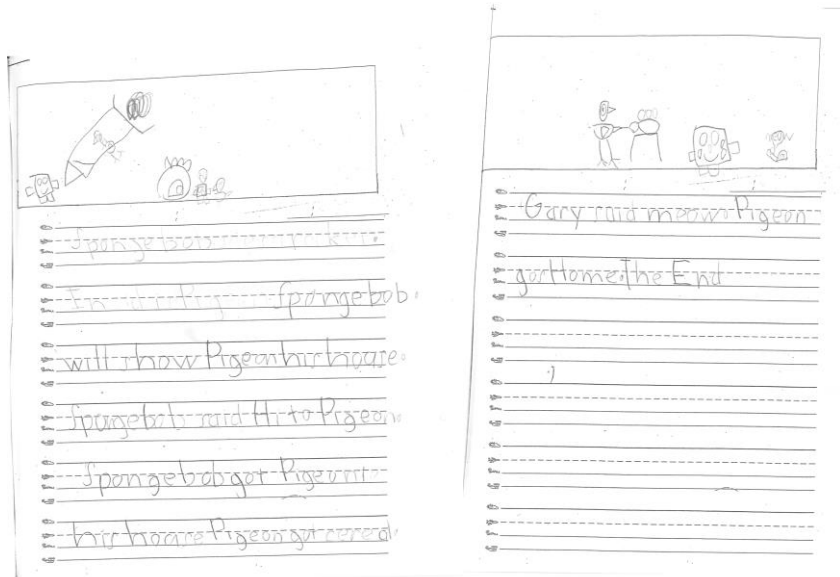 Spongebob
Spongebob.
will show Pigeon his house.
Spongebob said Hi to Pigeon
Spongebob got Pigeon t
his house Pigeon got cereal.
Gary said meow. Pigeon
got Home. The End